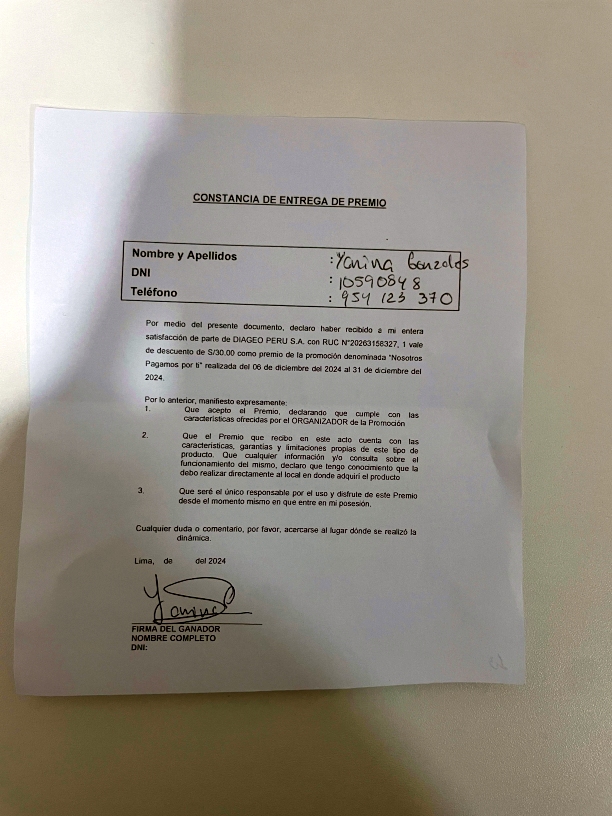 CONSTANCIA DE ENTREGA DE PREMIO
Nombre y Apellidos : Yanina Gonzales
DNI : 10590848
Teléfono : 954 123 370
Por medio del presente documento, declaro haber recibido a mi entera
satisfacción de parte de DIAGEO PERU S.A. con RUC N°20263158327, 1 vale
de descuento de S/30.00 como premio de la promoción denominada "Nosotros
Pagamos por ti" realizada del 06 de diciembre del 2024 al 31 de diciembre del
2024.
Por lo anterior, manifiesto expresamente:
1. Que acepto el Premio, declarando que cumple con las
características ofrecidas por el ORGANIZADOR de la Promoción
2. Que el Premio que recibo en este acto cuenta con las
características, garantías y limitaciones propias de este tipo de
producto. Que cualquier información y/o consulta sobre el
funcionamiento del mismo, declaro que tengo conocimiento que la
debo realizar directamente al local en donde adquirí el producto
3. Que seré el único responsable por el uso y disfrute de este Premio
desde el momento mismo en que entre en mi posesión.
Cualquier duda o comentario, por favor, acercarse al lugar dónde se realizó la
dinámica.
Lima, de del 2024
Yanina
FIRMA DEL GANADOR
NOMBRE COMPLETO
DNI: